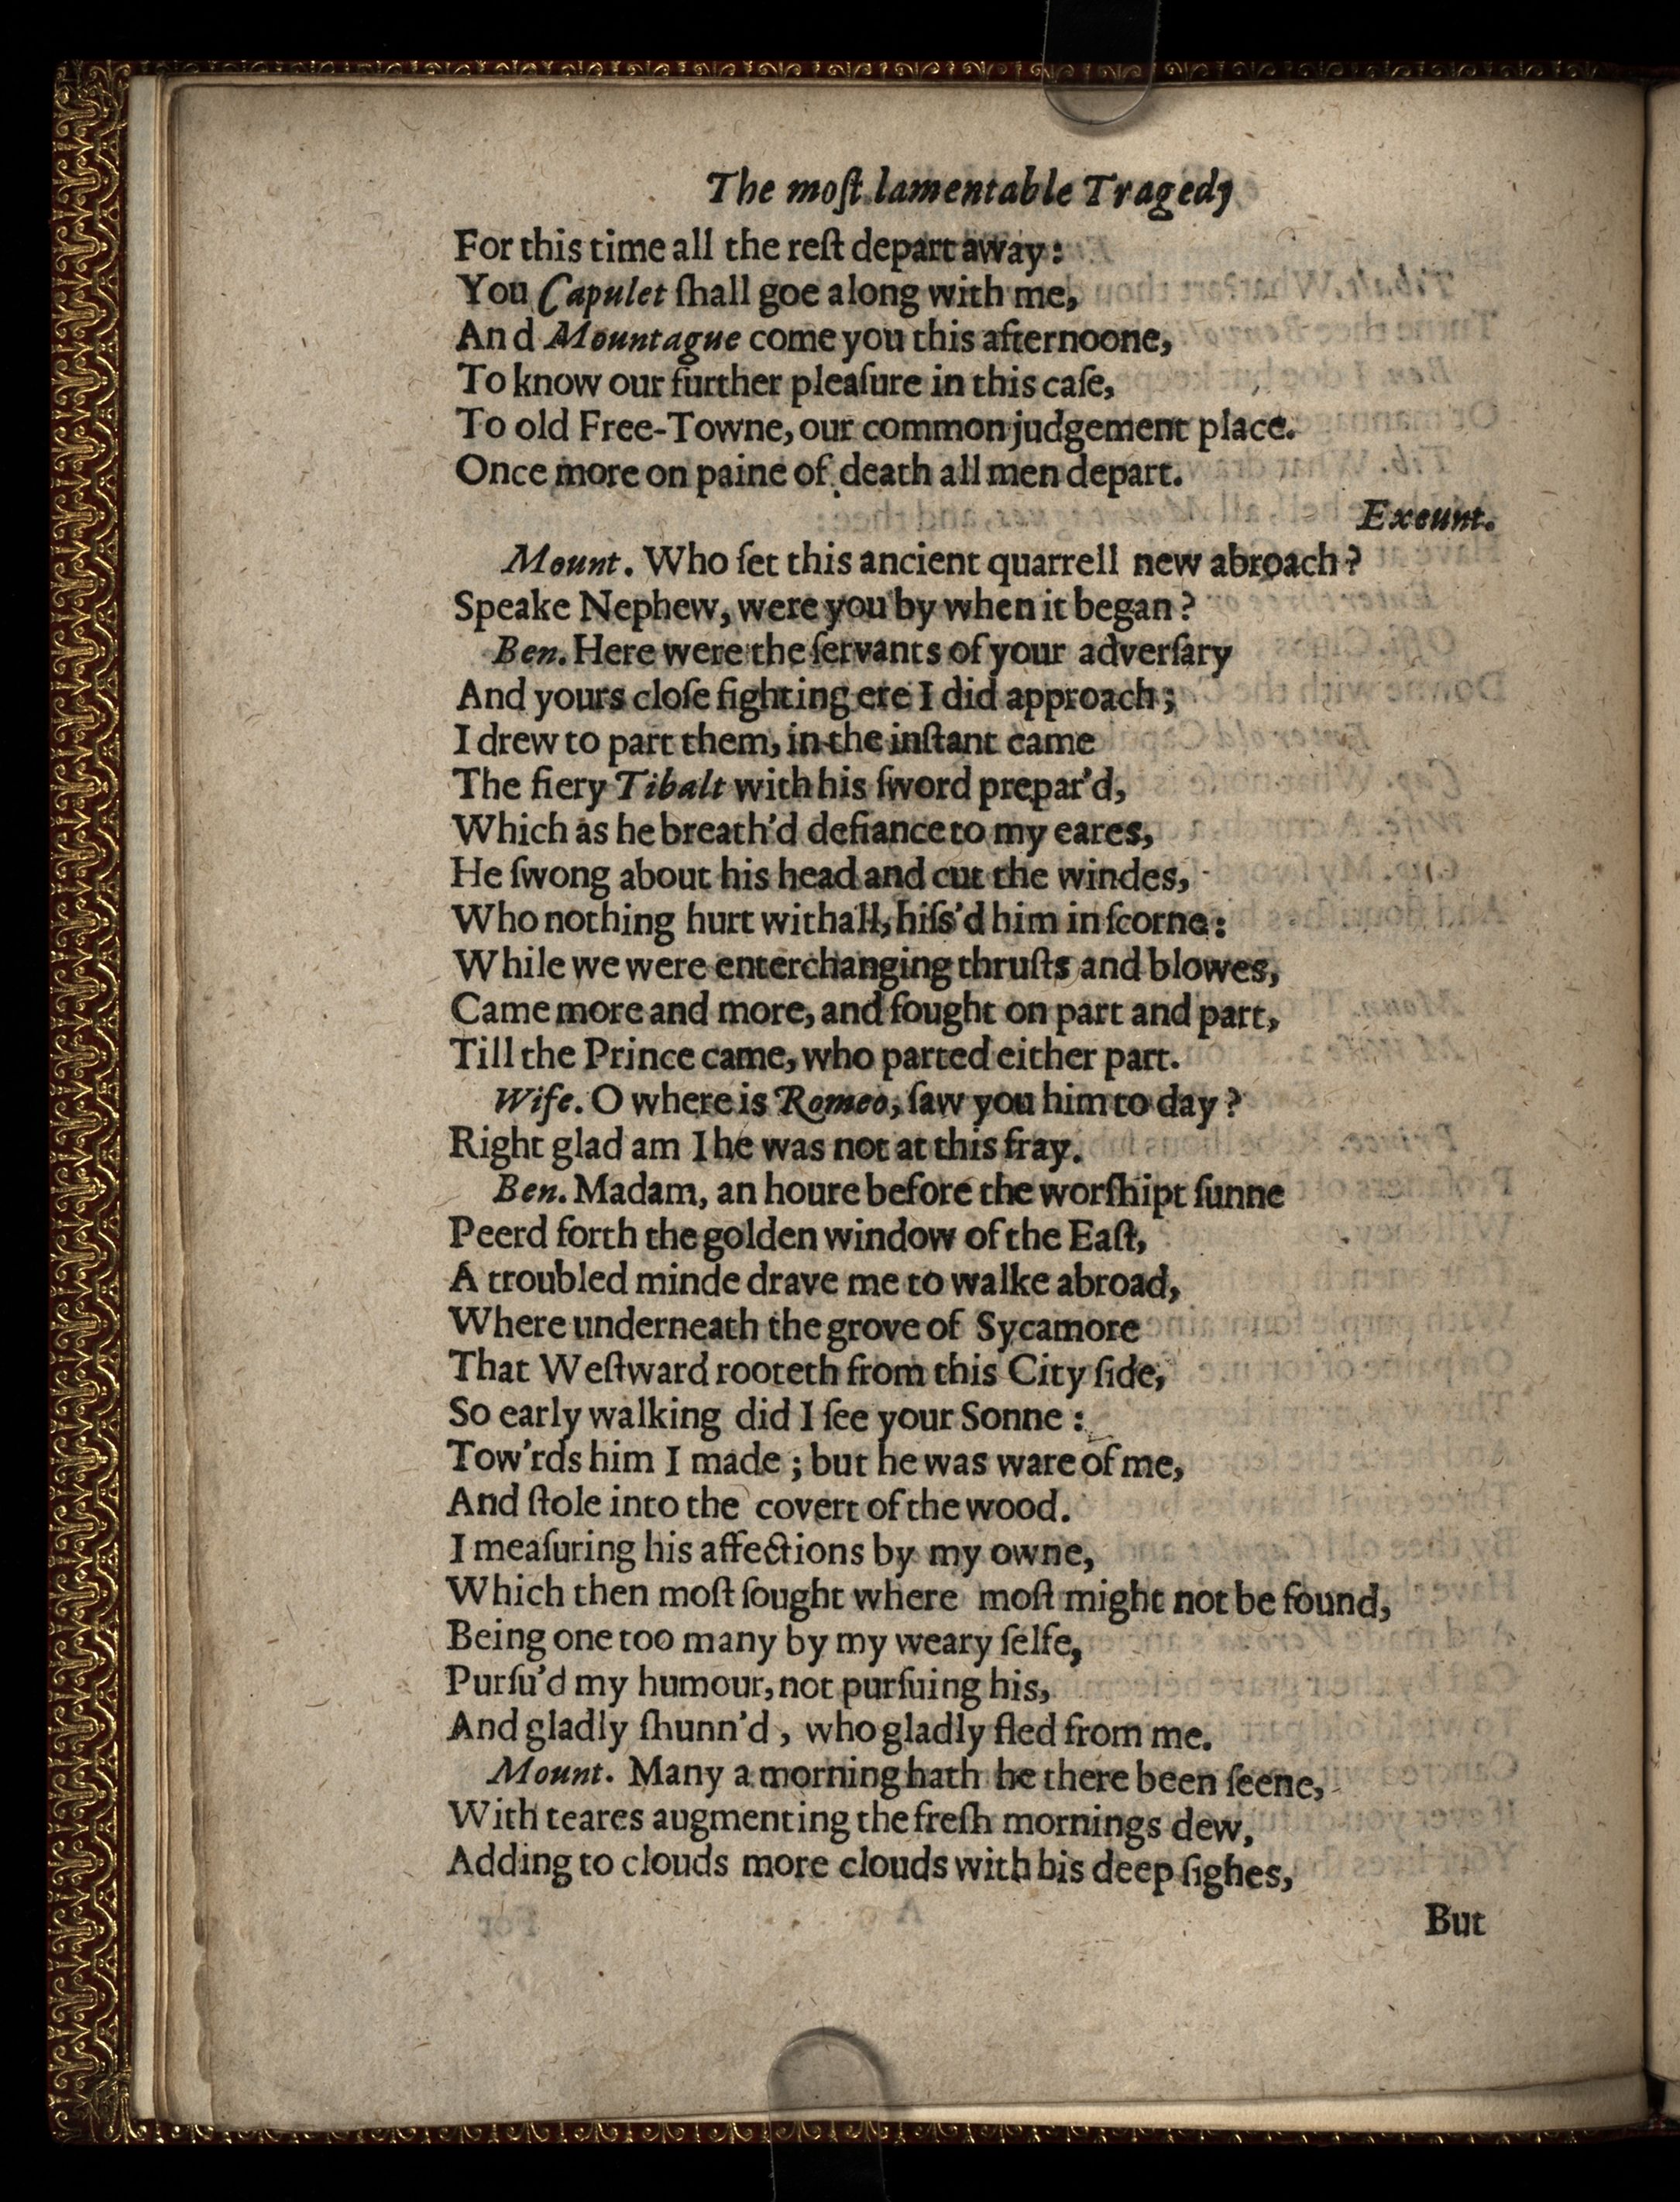 The moſt lamentable Tragedy
For this time all the reſt depart away:
You Capulet ſhall goe along with me,
And Mountague come you this afternoone,
To know our further pleaſure in this caſe,
To old Free-Towne, our common judgement place.
Once more on paine of death all men depart.
Exeunt.
Mount. Who ſet this ancient quarrell new abroach?
Speake Nephew, were you by when it began?
Ben. Here were the ſervants of your adverſary
And yours cloſe fighting ere I did approach;
I drew to part them, in the inſtant came
The fiery Tibalt with his ſword prepar'd,
Which as he breath'd defiance to my eares,
He ſwong about his head and cut the windes,
Who nothing hurt withall, hiſs'd him in ſcorne:
While we were enterchanging thruſts and blowes,
Came more and more, and fought on part and part,
Till the Prince came, who parted either part.
Wife. O where is Romeo, ſaw you him to day?
Right glad am I he was not at this fray.
Ben. Madam, an houre before the worſhipt ſunne
Peerd forth the golden window of the Eaſt,
A troubled minde drave me to walke abroad,
Where underneath the grove of Sycamore
That Weſtward rooteth from this City ſide,
So early walking did I ſee your Sonne:
Tow'rds him I made; but he was ware of me,
And ſtole into the covert of the wood.
I meaſuring his affections by my owne,
Which then moſt ſought where moſt might not be found,
Being one too many by my weary ſelfe,
Purſu'd my humour, not purſuing his,
And gladly ſhunn'd, who gladly fled from me.
Mount. Many a morning hath he there been ſeene,
With teares augmenting the freſh mornings dew,
Adding to clouds more clouds with his deep ſighes,
But